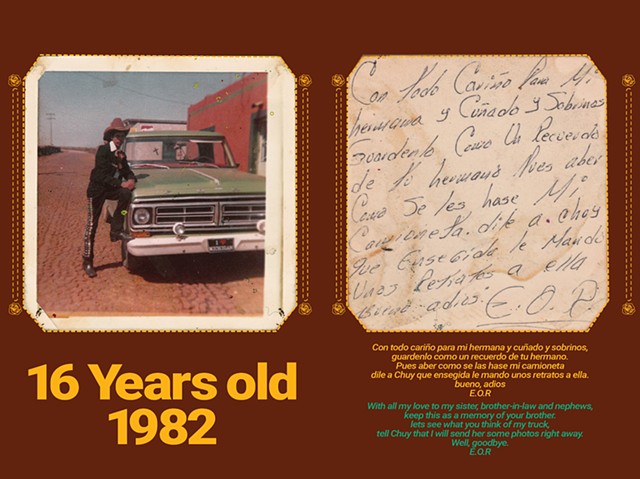 Con todo Cariño Para Mi
hermana y Cuñado y Sobrinos
Guardenlo Como Un Recuerdo
de tu hermano Pues aber
Como Se les hase Mi
Camioneta. dile a chuy
que Ensegida le Mando
Unos Retrates a ella
Bueno adios. E.O.R.
16 Years old
1982
Con todo cariño para mi hermana y cuñado y sobrinos,
guardenlo como un recuerdo de tu hermano.
Pues aber como se las hase mi camioneta
dile a Chuy que ensegida le mando unos retratos a ella.
bueno, adios
E.O.R
With all my love to my sister, brother-in-law and nephews,
keep this as a memory of your brother.
lets see what you think of my truck,
tell Chuy that I will send her some photos right away.
Well, goodbye.
E.O.R